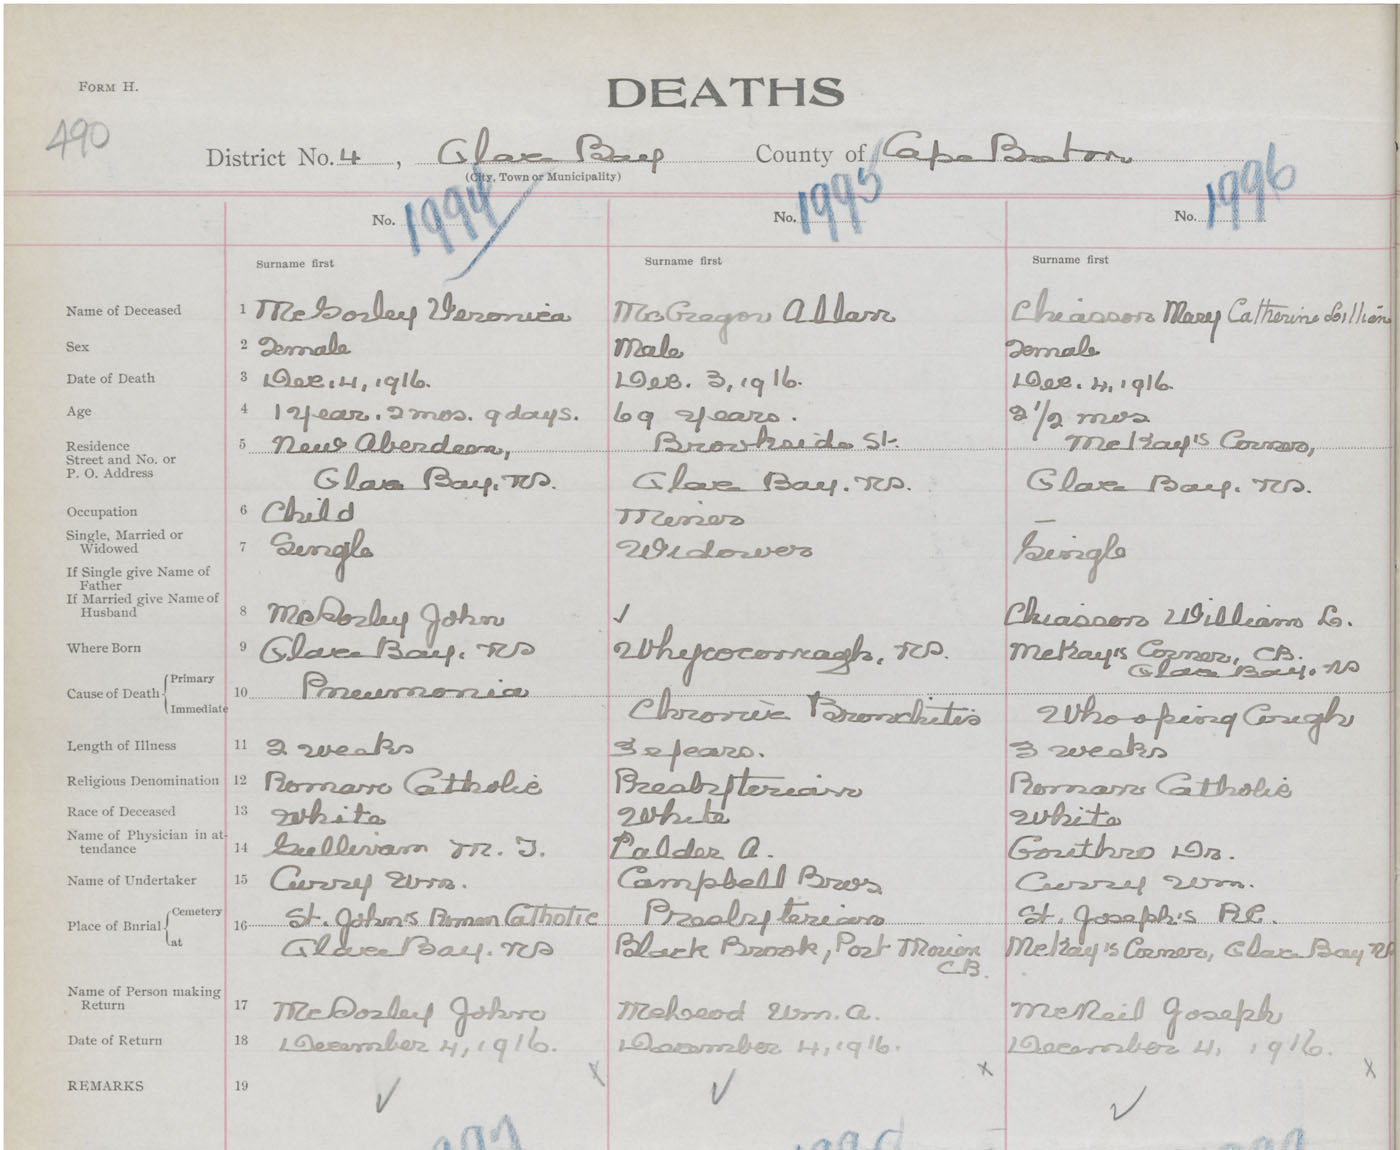 FORM H.
DEATHS
490
District No. 4, Glace Bay County of Cape Breton
(City, Town or Municipality)
No. 1994 No. 1995 No. 1996
Surname first Surname first Surname first
Name of Deceased 1 Veronica McGregor Allan Chiasson Mary Catherine Lillian
Sex 2 Female Male Female
Date of Death 3 Dec. 4, 1916. Dec. 3, 1916. Dec. 4, 1916.
Age 4 1 year. 2 mos. 9 days. 69 years. 2 1/2 mos
Residence 5 New Aberdeen, Brookside St. McKay's Corner,
Street and No. or
P. O. Address Glace Bay. NS. Glace Bay. NS. Glace Bay. NS.
Occupation 6 Child Miner —
Single, Married or
Widowed 7 Single Widower Single
If Single give Name of
Father
If Married give Name of
Husband 8 John ✓ Chiasson William L.
Where Born 9 Glace Bay. NS Whycocomagh. NS. McKay's Corner, CB.
Glace Bay. NS
Cause of Death { Primary 10 Pneumonia
Immediate Chronic Bronchitis Whooping Cough
Length of Illness 11 2 weeks 3 years. 3 weeks
Religious Denomination 12 Roman Catholic Presbyterian Roman Catholic
Race of Deceased 13 White White White
Name of Physician in at-
tendance 14 Sullivan M. T. Calder A. Gouthro Dr.
Name of Undertaker 15 Curry Wm. Campbell Bros Curry Wm.
Place of Burial { Cemetery 16 St. John's Roman Catholic Presbyterian St. Joseph's R.C.
at Glace Bay. NS Black Brook, Port Morien McKay's Corner, Glace Bay NS
CB.
Name of Person making
Return 17 John McLeod Wm. A. McNeil Joseph
Date of Return 18 December 4, 1916. December 4, 1916. December 4, 1916.
x x x
REMARKS 19 ✓ ✓ ✓